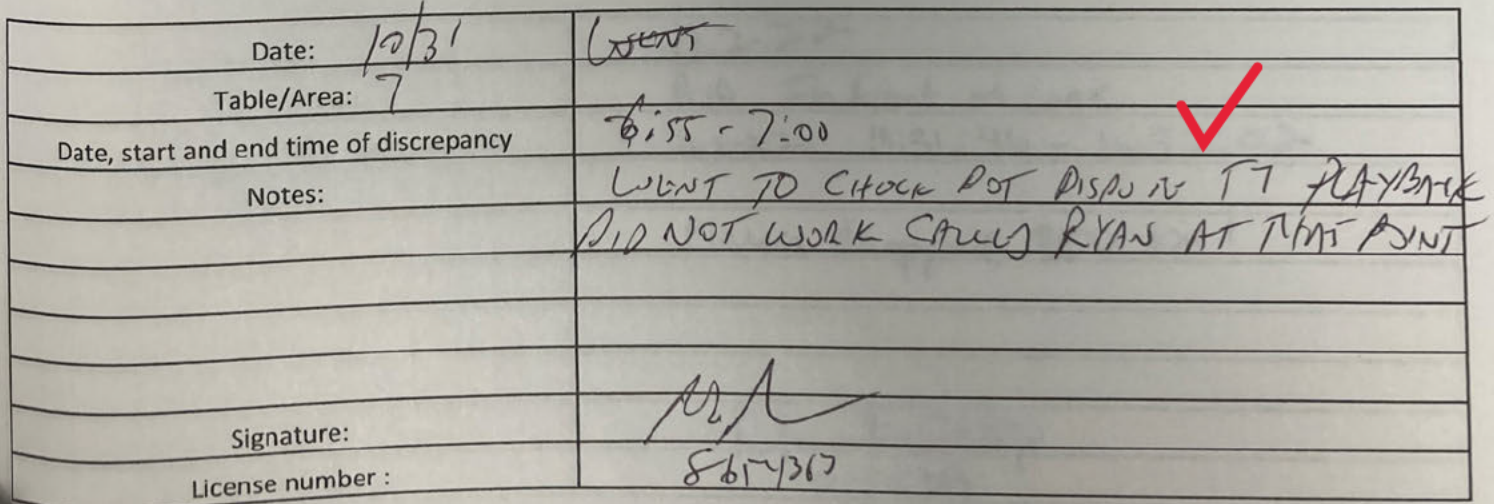 Date: 10/31 Went
Table/Area: 7
Date, start and end time of discrepancy 6:55 - 7:00
Notes: WENT TO CHECK POT DISPUTE T7 PLAYBACK
DID NOT WORK CALLED RYAN AT THAT POINT
Signature:
License number :